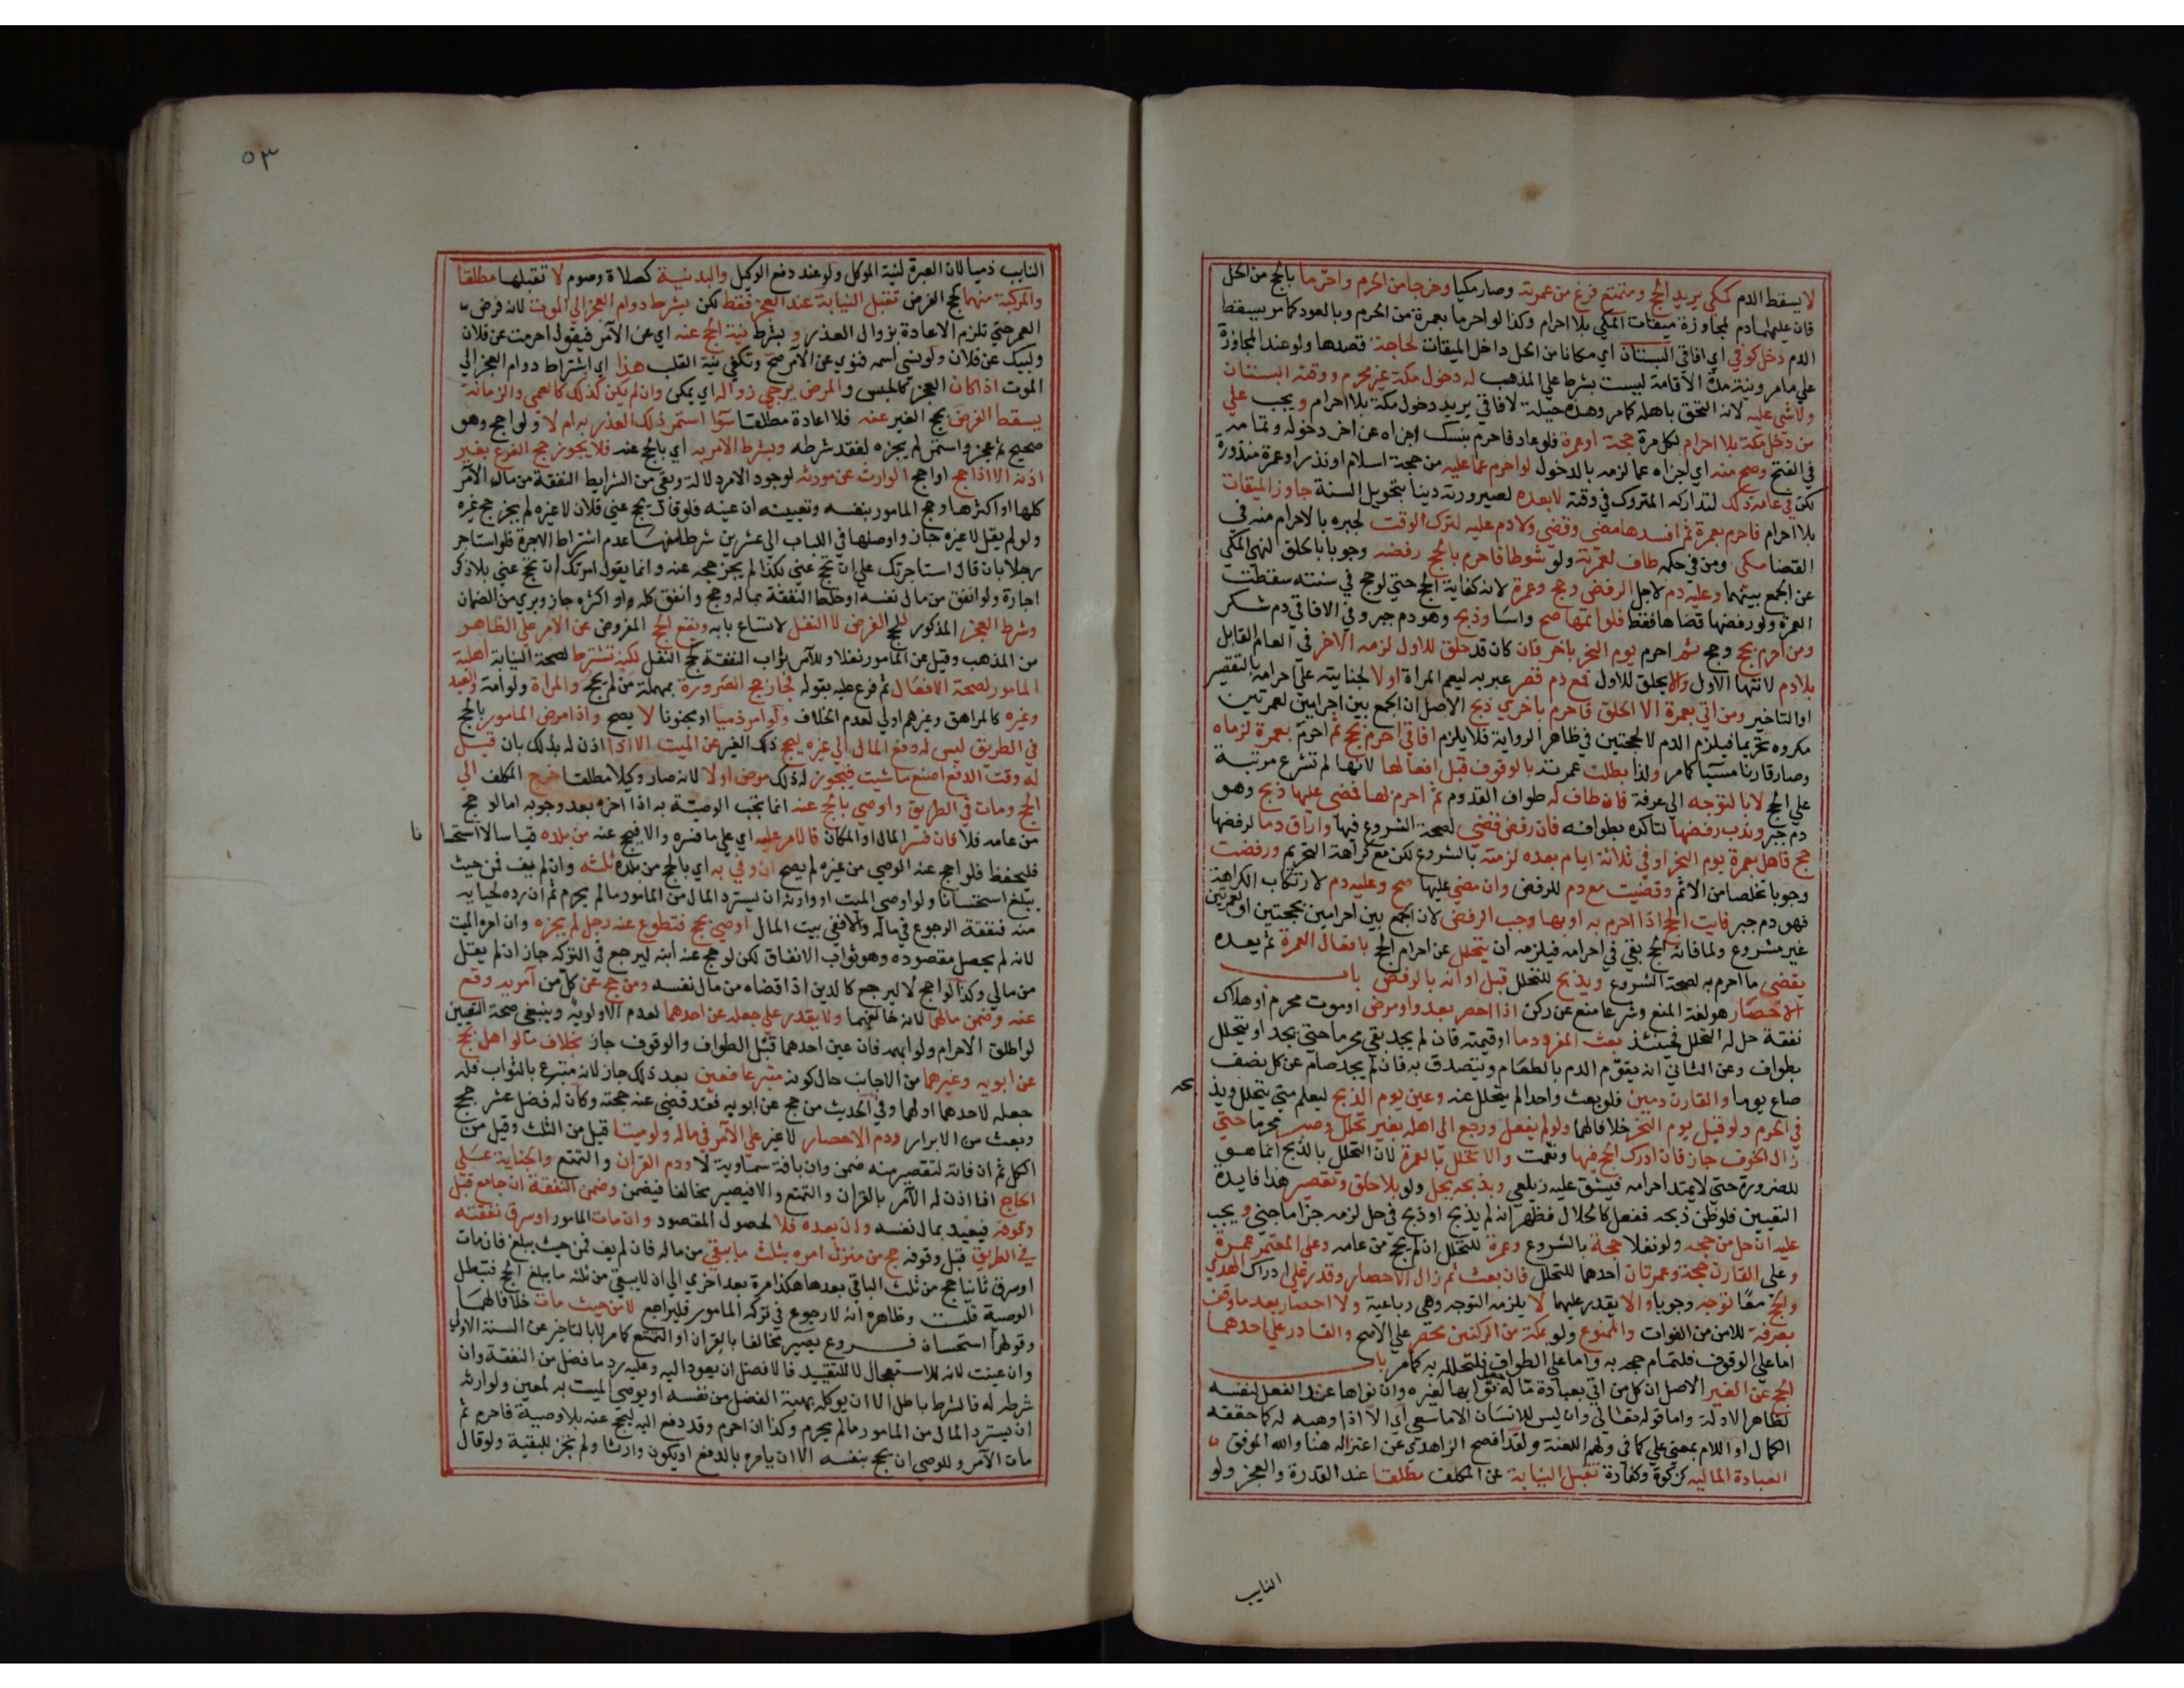 لا يسقط الدم كمكي يريد الحج ومتمتع فرغ من عمرته وصار مكيا وخرجا من الحرم واحرما بالحج من الحل
فان عليهما دم لمجاوزة ميقات المكي بلا احرام وكذا لو احرما بعمرة من الحرم وبالعود كما مر يسقط
الدم دخل كوفي اي افاقي البستان اي مكانا من الحل داخل الميقات لحاجة قصدها ولو عند المجاوزة
علي ما مر ونية مدة الاقامة ليست بشرط علي المذهب له دخول مكة غير محرم ووقته البستان
ولا شي عليه لانه التحق باهله كما مر وهذه حيلة لافاقي يريد دخول مكة بلا احرام ويجب علي
من دخل مكة بلا احرام لكل مرة حجة او عمرة فلو عاد فاحرم بنسك اجزاه عن اخر دخوله وتمامه
في الفتح وصح منه اي اجزاه عما لزمه بالدخول لو احرم عما عليه من حجة اسلام او نذر او عمرة منذورة
لكن في عامه ذلك لتداركه المتروك في وقته لا بعده لصيرورته دينا بتحويل السنة جاوز الميقات
بلا احرام فاحرم بعمرة ثم افسدها مضي وقضي ولا دم عليه لترك الوقت لجبره بالاحرام منه في
القضا مكي ومن في حكمه طاف لعمرته ولو شوطا فاحرم بالحج رفضه وجوبا بالحلق لنهي المكي
عن الجمع بينهما وعليه دم لاجل الرفض وحج وعمرة لانه كفايت الحج حتي لو حج في سنته سقطت
العمرة ولو رفضها قضاها فقط فلو اتمها صح واسا وذبح وهو دم جبر وفي الافاقي دم شكر
ومن احرم بحج وحج ثم احرم يوم النحر باخر فان كان قد حلق للاول لزمه الاخر في العام القابل
بلا دم لانتها الاول والا يحلق للاول فمع دم قصر عبر به ليعم المراة او لا لجنايته علي احرامه بالتقصير
او التاخير ومن اتي بعمرة الا الحلق فاحرم باخري ذبح الاصل ان الجمع بين احرامين لعمرتين
مكروه تحريما فيلزم الدم لا لحجتين في ظاهر الرواية فلا يلزم افاقي احرم بحج ثم احرم بعمرة لزماه
وصار قارنا مسيا كما مر ولذا بطلت عمرته بالوقوف قبل افعالها لانها لم تشرع مرتبة
علي الحج لا بالتوجه الي عرفة فان طاف له طواف القدوم ثم احرم لها فمضي عليها ذبح وهو
دم جبر وندب رفضها لتاكده بطوافه فان رفض قضي لصحة الشروع فيها واراق دما لرفضها
حج فاهل بعمرة يوم النحر او في ثلاثة ايام بعده لزمته بالشروع لكن مع كراهة التحريم ورفضت
وجوبا تخلصا من الاثم وقضيت مع دم للرفض وان مضي عليها صح وعليه دم لارتكاب الكراهة
فهو دم جبر فايت الحج اذا احرم به او بها وجب الرفض لان الجمع بين احرامين بحجتين او بعمرتين
غير مشروع ولما فاته الحج بقي في احرامه فيلزمه ان يتحلل عن احرام الحج بافعال العمرة ثم بعده
يقضي ما احرم به لصحة الشروع ويذبح للتحلل قبل اوانه بالرفض باب
الاحصار هو لغة المنع وشرعا منع عن ركن اذا احصر بعدو او مرض او موت محرم او هلاك
نفقة حل له التحلل فحينئذ بعث المفرد دما او قيمته فان لم يجد بقي محرما حتي يجد او يتحلل
بطواف وعن الثاني انه يقوم الدم بالطعام ويتصدق به فان لم يجد صام عن كل نصف
صاع يوما والقارن دمين فلو بعث واحدا لم يتحلل عنه وعين يوم الذبح ليعلم متي يتحلل ويذبحه
في الحرم ولو قبل يوم النحر خلافا لهما ولو لم يفعل ورجع الي اهله بغير تحلل وصبر محرما حتي
زال الخوف جاز فان ادرك الحج فيها ونعمت والا تحلل بالعمرة لان التحلل بالذبح انما هو
للضرورة حتي لا يمتد احرامه فيشق عليه زيلعي وبذبحه يحل ولو بلا حلق وتقصير هذا فايدة
التعيين فلو ظن ذبحه ففعل كالحلال فظهر انه لم يذبح او ذبح في حل لزمه جزا ما جني ويجب
عليه ان حل من حجه ولو نفلا حجة بالشروع وعمرة للتحلل ان لم يحج من عامه وعلي المعتمر عمرة
وعلي القارن حجة وعمرتان احدهما للتحلل فان بعث ثم زال الاحصار وقدر علي ادراك الهدي
والحج معا توجه وجوبا والا يقدر عليهما لا يلزمه التوجه وهي رباعية ولا احصار بعد ما وقف
بعرفة للامن من الفوات والممنوع ولو بمكة من الركنين محصر علي الاصح والقادر علي احدهما
اما علي الوقوف فلتمام حجه به واما علي الطواف فلتحلله به كما مر باب
الحج عن الغير الاصل ان كل من اتي بعبادة ما له جعل ثوابها لغيره وان نواها عند الفعل لنفسه
لظاهر الادلة واما قوله تعالي وان ليس للانسان الا ما سعي اي الا اذا وهبه له كما حققه
الكمال او اللام بمعني علي كما في ولهم اللعنة ولقد افصح الزاهدي عن اعتزاله هنا والله الموفق
العبادة المالية كزكوة وكفارة تقبل النيابة عن المكلف مطلقا عند القدرة والعجز ولو
النايب
٥٣
النايب ذميا لان العبرة لنية الموكل ولو عند دفع الوكيل والبدنية كصلاة وصوم لا تقبلها مطلقا
والمركبة منهما كحج الفرض تقبل النيابة عند العجز فقط لكن بشرط دوام العجز الي الموت لانه فرض
العمر حتي تلزم الاعادة بزوال العذر وبشرط نية الحج عنه اي عن الآمر فيقول احرمت عن فلان
ولبيك عن فلان ولو نسي اسمه فنوي عن الآمر صح وتكفي نية القلب هذا اي اشتراط دوام العجز الي
الموت اذا كان العجز كالحبس والمرض يرجي زواله اي يمكن وان لم يكن كذلك كالعمي والزمانة
يسقط الفرض بحج الغير عنه فلا اعادة مطلقا سوا استمر ذلك العذر به ام لا ولو احج وهو
صحيح ثم عجز واستمر لم يجزه لفقد شرطه وبشرط الامر به اي بالحج عنه فلا يجوز حج الغير بغير
اذنه الا اذا حج او احج الوارث عن مورثه لوجود الامر دلالة وبقي من الشرايط النفقة من مال الآمر
كلها او اكثرها وحج المامور بنفسه وتعيينه ان عينه فلو قال يحج عني فلان لا غيره لم يجز حج غيره
ولو لم يقل لا غيره جاز واوصلها في اللباب الي عشرين شرطا منها عدم اشتراط الاجرة فلو استاجر
رجلا بان قال استاجرتك علي ان تحج عني بكذا لم يجز حجه عنه وانما يقول امرتك ان تحج عني بلا ذكر
اجارة ولو انفق من مال نفسه او خلط النفقة بماله وحج وانفق كله او اكثره جاز وبري من الضمان
وشرط العجز المذكور للحج الفرض لا النفل لاتساع بابه ويقع الحج المفروض عن الآمر علي الظاهر
من المذهب وقيل عن المامور نفلا وللآمر ثواب النفقة كحج النفل لكنه تشترط لصحة النيابة اهلية
المامور لصحة الافعال ثم فرع عليه بقوله فجاز حج الصرورة بمهملة من لم يحج والمراة ولو امة والعبد
وغيره كالمراهق وغيرهم اولي لعدم الخلاف ولو امر ذميا او مجنونا لا يصح واذا مرض المامور بالحج
في الطريق ليس له دفع المال الي غيره ليحج ذلك الغير عن الميت الا اذا اذن له بذلك بان قيل
له وقت الدفع اصنع ما شيت فيجوز له ذلك مرض او لا لانه صار وكيلا مطلقا خرج المكلف الي
الحج ومات في الطريق واوصي بالحج عنه انما تجب الوصية به اذا اخره بعد وجوبه اما لو حج
من عامه فلا فان فسر المال او المكان فالامر عليه اي علي ما فسره والا فيحج عنه من بلده قياسا لا استحسانا
فليحفظ فلو احج عنه الوصي من غيره لم يصح ان وفي به اي بالحج من بلده ثلثه وان لم يف فمن حيث
يبلغ استحسانا ولو اوصي الميت او وارثه ان يسترد المال من المامور ما لم يحرم ثم ان رده لخيانة
منه فنفقة الرجوع في ماله والا ففي بيت المال اوصي بحج فتطوع عنه رجل لم يجزه وان امره الميت
لانه لم يحصل مقصوده وهو ثواب الانفاق لكن لو حج عنه ابنه ليرجع في التركه جاز ان لم يقل
من مالي وكذا لو احج لا ليرجع كالدين اذا قضاه من مال نفسه ومن حج عن كل من آمريه وقع
عنه وضمن مالهما لانه خالفهما ولا يقدر علي جعله عن احدهما لعدم الاولوية وينبغي صحة التعيين
لو اطلق الاحرام ولو ابهمه فان عين احدهما قبل الطواف والوقوف جاز بخلاف ما لو اهل بحج
عن ابويه وغيرهما من الاجانب حال كونه متبرعا فعين بعد ذلك جاز لانه متبرع بالثواب فله
جعله لاحدهما او لهما وفي الحديث من حج عن ابويه فقد قضي عنه حجته وكان له فضل عشر حجج
وبعث من الابرار ودم الاحصار لا غير علي الآمر في ماله ولو ميتا قيل من الثلث وقيل من
الكل ثم ان فاته لتقصير منه ضمن وان بافة سماوية لا ودم القران والتمتع والجناية علي
الحاج ان اذن له الآمر بالقران والتمتع والا فيصير مخالفا فيضمن وضمن النفقة ان جامع قبل
وقوفه فيعيد بمال نفسه وان بعده فلا لحصول المقصود وان مات المامور او سرق نفقته
في الطريق قبل وقوفه حج من منزل امره بثلث ما بقي من ماله فان لم يف فمن حيث يبلغ فان مات
او سرق ثانيا حج من ثلث الباقي بعدها هكذا مرة بعد اخري الي ان لا يبقي من ثلثه ما يبلغ الحج فتبطل
الوصية قلت وظاهره انه لا رجوع في تركه المامور فليراجع لا من حيث مات خلافا لهما
وقولهما استحسان فروع يصير مخالفا بالقران او التمتع كما مر لا بالتاخر عن السنة الاولي
وان عينت لانه للاستعجال لا للتقييد فالافضل ان يعود اليه وعليه رد ما فضل من النفقة وان
شرطه له فالشرط باطل الا ان يوكله بهبة الفضل من نفسه او يوصي الميت به لمعين ولوارثه
ان يسترد المال من المامور ما لم يحرم وكذا ان احرم وقد دفع اليه ليحج عنه بلا وصية فاحرم ثم
مات الآمر وللوصي ان يحج بنفسه الا ان يامره بالدفع او يكون وارثا ولم تجز للبقية ولو قال